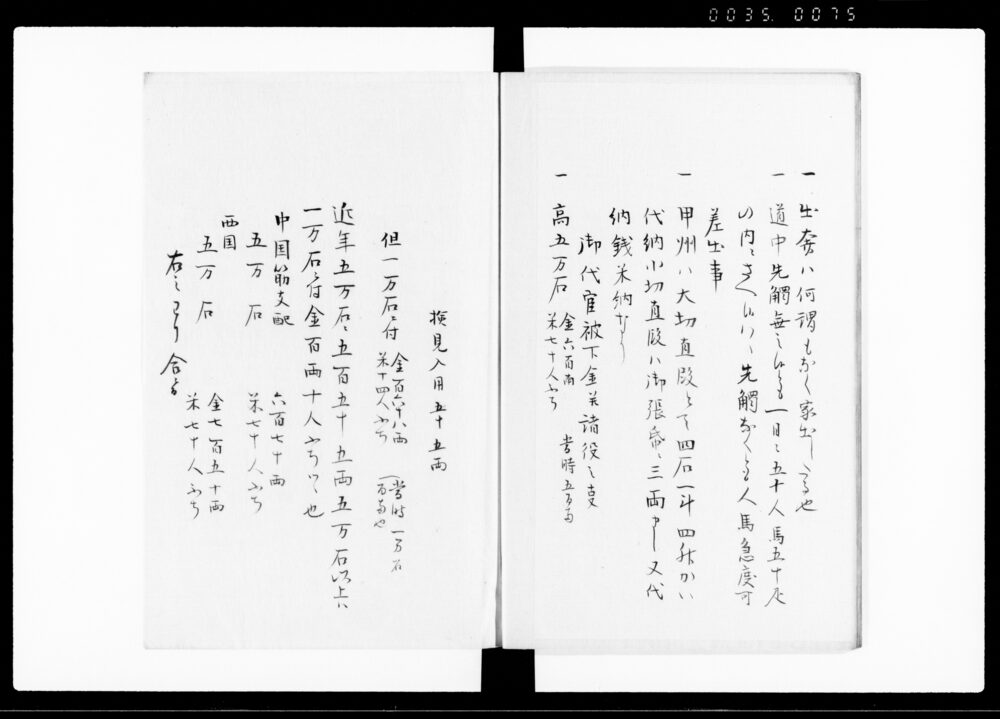 0035. 0075
一 出奔ハ何謂もなく家出し
一 道中先触無之候とも一日ニ五十人馬五十疋
の内ニさへ候ハヽ先触なくとも人馬急度可
差出事
一 甲州ハ大切直段とて四石一斗四升かい
代納小切直段ハ御張帋ニ三両申し又代
納銭米納なり
御代官被下金并諸役之事
一 高五万石 金六百両 米七十人ふち 当時五百両
検見入用五十五両
但一万石ニ付 金百六十八両 米十四人ふち (当時一万石 百両也
近年五万石ニ五百五十五両五万石以上ハ
一万石ニ付金百両十人ふちツヽ也
中国筋支配
五万石 六百七十両 米七十人ふち
西国
五万石 金七百五十両 米七十人ふち
右之わり合